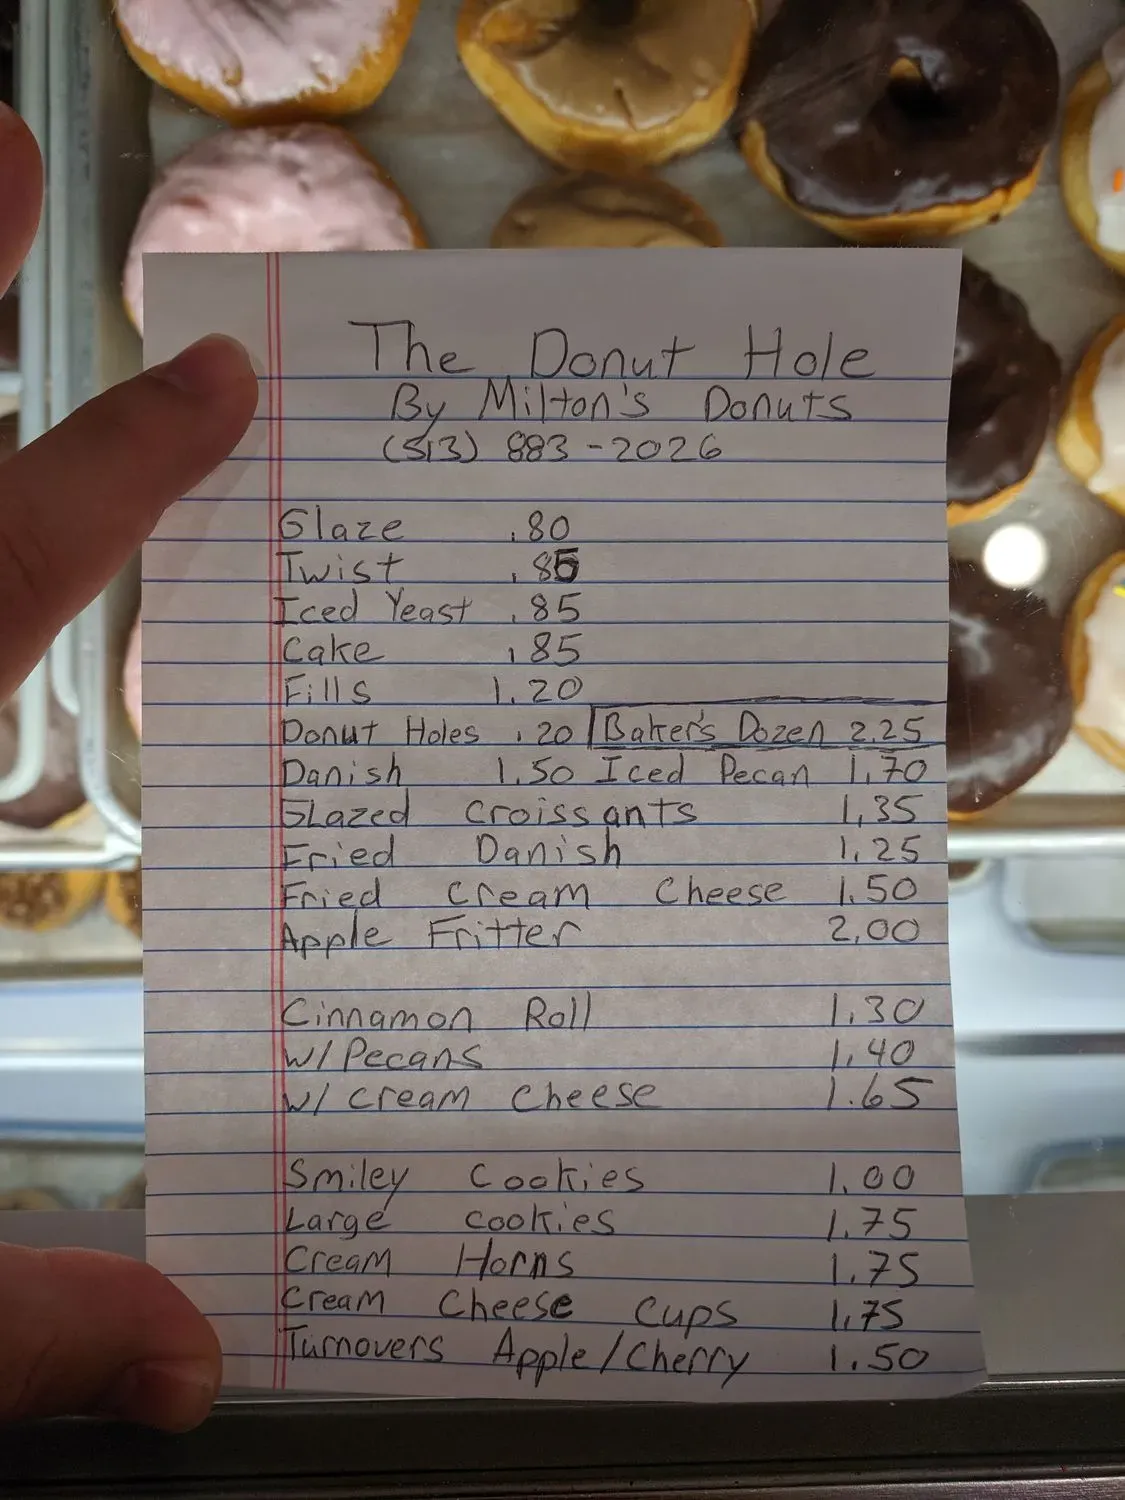 The Donut Hole
By Milton's Donuts
(513) 883-2026
Glaze .80
Twist .85
Iced Yeast .85
Cake .85
Fills 1.20
Donut Holes .20 Baker's Dozen 2.25
Danish 1.50 Iced Pecan 1.70
Glazed Croissants 1.35
Fried Danish 1.25
Fried Cream Cheese 1.50
Apple Fritter 2.00
Cinnamon Roll 1.30
w/Pecans 1.40
w/ cream cheese 1.65
Smiley Cookies 1.00
Large cookies 1.75
Cream Horns 1.75
Cream Cheese Cups 1.75
Turnovers Apple/Cherry 1.50